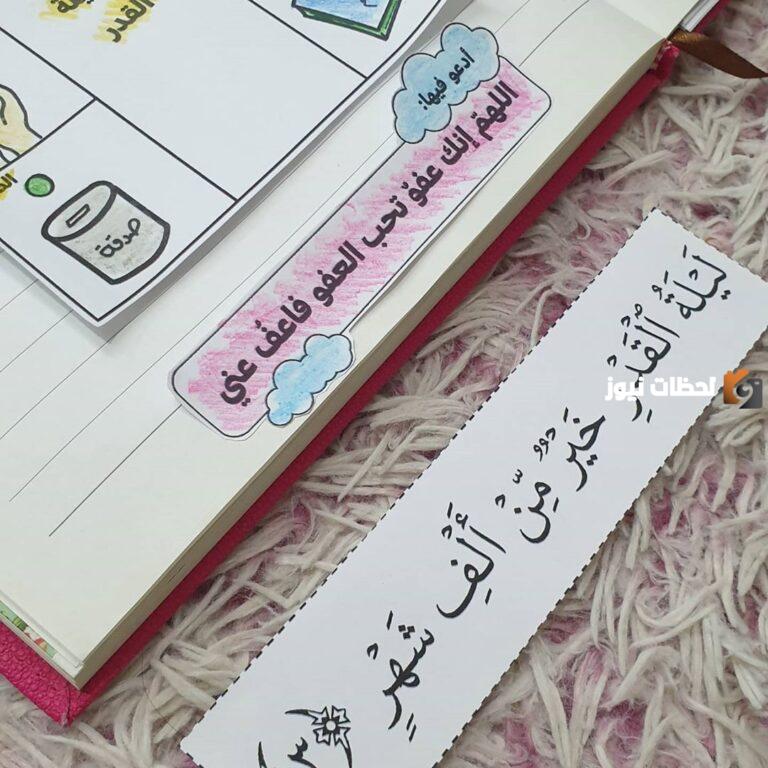 القدر
صدقة
أدعو فيها:
اللهمّ إنك عفوّ تحب العفو فاعفُ عني
لَيْلَةُ الْقَدْرِ خَيْرٌ مِّنْ أَلْفِ شَهْرٍ
لحظات نيوز